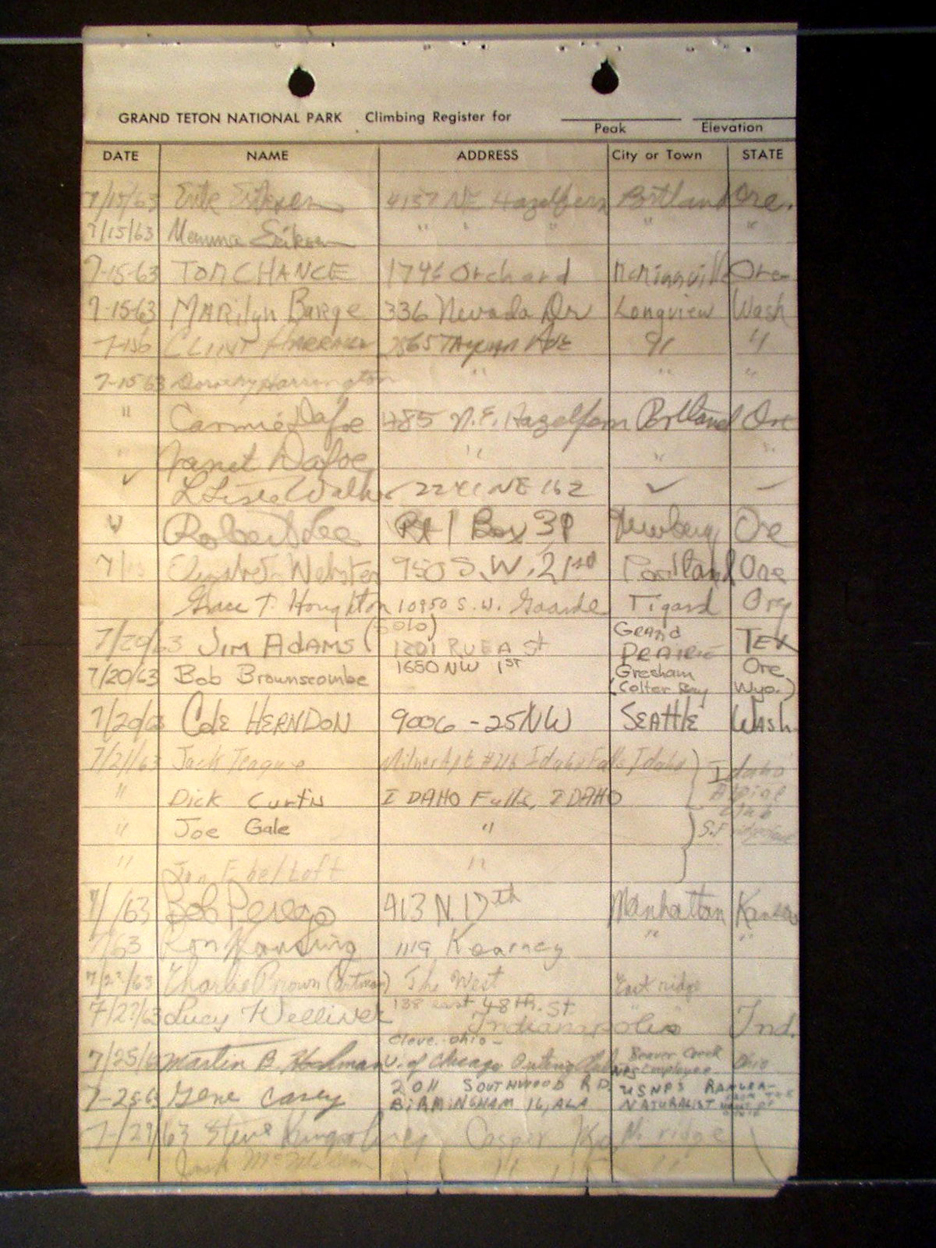 GRAND TETON NATIONAL PARK Climbing Register for
Peak Elevation
DATE NAME ADDRESS City or Town STATE
7/15/63 4137 NE Hazelfern Portland Ore.
7/15/63 " " " " "
7-15-63 TOM CHANCE 1746 Orchard McMinnville Ore
7-15-63 Marilyn Barge 336 Nevada Dr Longview Wash
CLINT "
7-15-63 Dorothy Harrington " " "
" Dafoe 485 N.E. Hazelfern Portland Ore
" Janet Dafoe " " "
2241 NE 162
Robert Lee Rt 1 Box 38 Newberg Ore
7/ Webster 950 S.W. 21st Portland Ore
Grace T. Houghton 10950 S.W. Gaarde Tigard Oreg
7/20/63 JIM ADAMS (SOLO) 1201 RUEA St GRAND PRAIRIE TEX
7/20/63 Bob Brownscombe 1650 NW 1ST Gresham Ore
(Colter Bay Wyo.)
7/20/63 Cole HERNDON 9006 - 25 NW SEATTLE Wash
7/21/63 Jack Teague Milner Apt #216 Idaho Falls Idaho Idaho
" Dick Curtis IDAHO Falls, IDAHO Alpine
" Joe Gale " Club
" "
7/ /63 Bob 413 N. 17th Manhattan Kansas
7/63 Ron 1119 Kearney " "
7/2 /63 Charlie Brown The West East ridge
7/22/63 Lucy Welliver 138 east 48th. St
Indianapolis Ind.
Cleve. Ohio -
7/25/6 Martin B. U. of Chicago Outing Club Beaver Creek Ohio
NPS Employee
7-28-63 Gene Casey 2011 SOUTHWOOD RD USNPS RANGER-
BIRMINGHAM 16, ALA NATURALIST
7-29/63 Steve Casper ridge
" " "